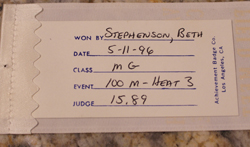 WON BY STEPHENSON, BETH
DATE 5-11-96
CLASS M G
EVENT 100 M - HEAT 3
JUDGE 15.89
Achievement Badge Co.
Los Angeles, CA